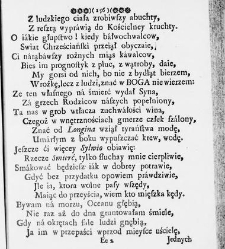 (196)
Z ludzkiego ciała zrobiwszy abuchty,
Z resztą wyprawią do Kościelney kruchty.
O iákie głupstwo! kiedy báłwochwalcow,
Swiat Chrześciáński przeiął obyczaie,
Ci nárąbáwszy rożnych miąs káwalcow,
Bies im prognostyk z płuc, z wątroby, daie,
My gorsi od nich, bo nie z bydląt bierzem,
Wrożkę, lecz z ludzi, znáć w BOGA nie wierzem:
Ze ten własnego ná śmierć wydał Syna,
Zá grzech Rodzicow nászych popełniony,
Ta nas w grob wtłacza zachwáłości winá,
Czegoż w wnętrznościách gmerze człek szálony,
Znáć od Longina wziął tyrańśtwá modę,
Umárłym z boku wypuszczáć krew, wodę.
Jeszcze ći więcey Sylwio obiáwię:
Rzecze śmierć, tylko słuchay mnie cierpliwie,
Smákowáć będziesz iák w dobrey potrawie,
Gdyć bez przydatku opowiem práwdziwie,
Jle ia, ktora wolne pásy wszędy,
Maiąc do przeyścia, wiem kto mięszka kędy.
Bywam ná morzu, Oceanu głębią,
Nie raz áż do dna grantowałam śmiele,
Gdy ná okrętách file ludzi gnębią,
Ja im w przepáści wprzod mieysce uścielę,
Ee 2 Jednych